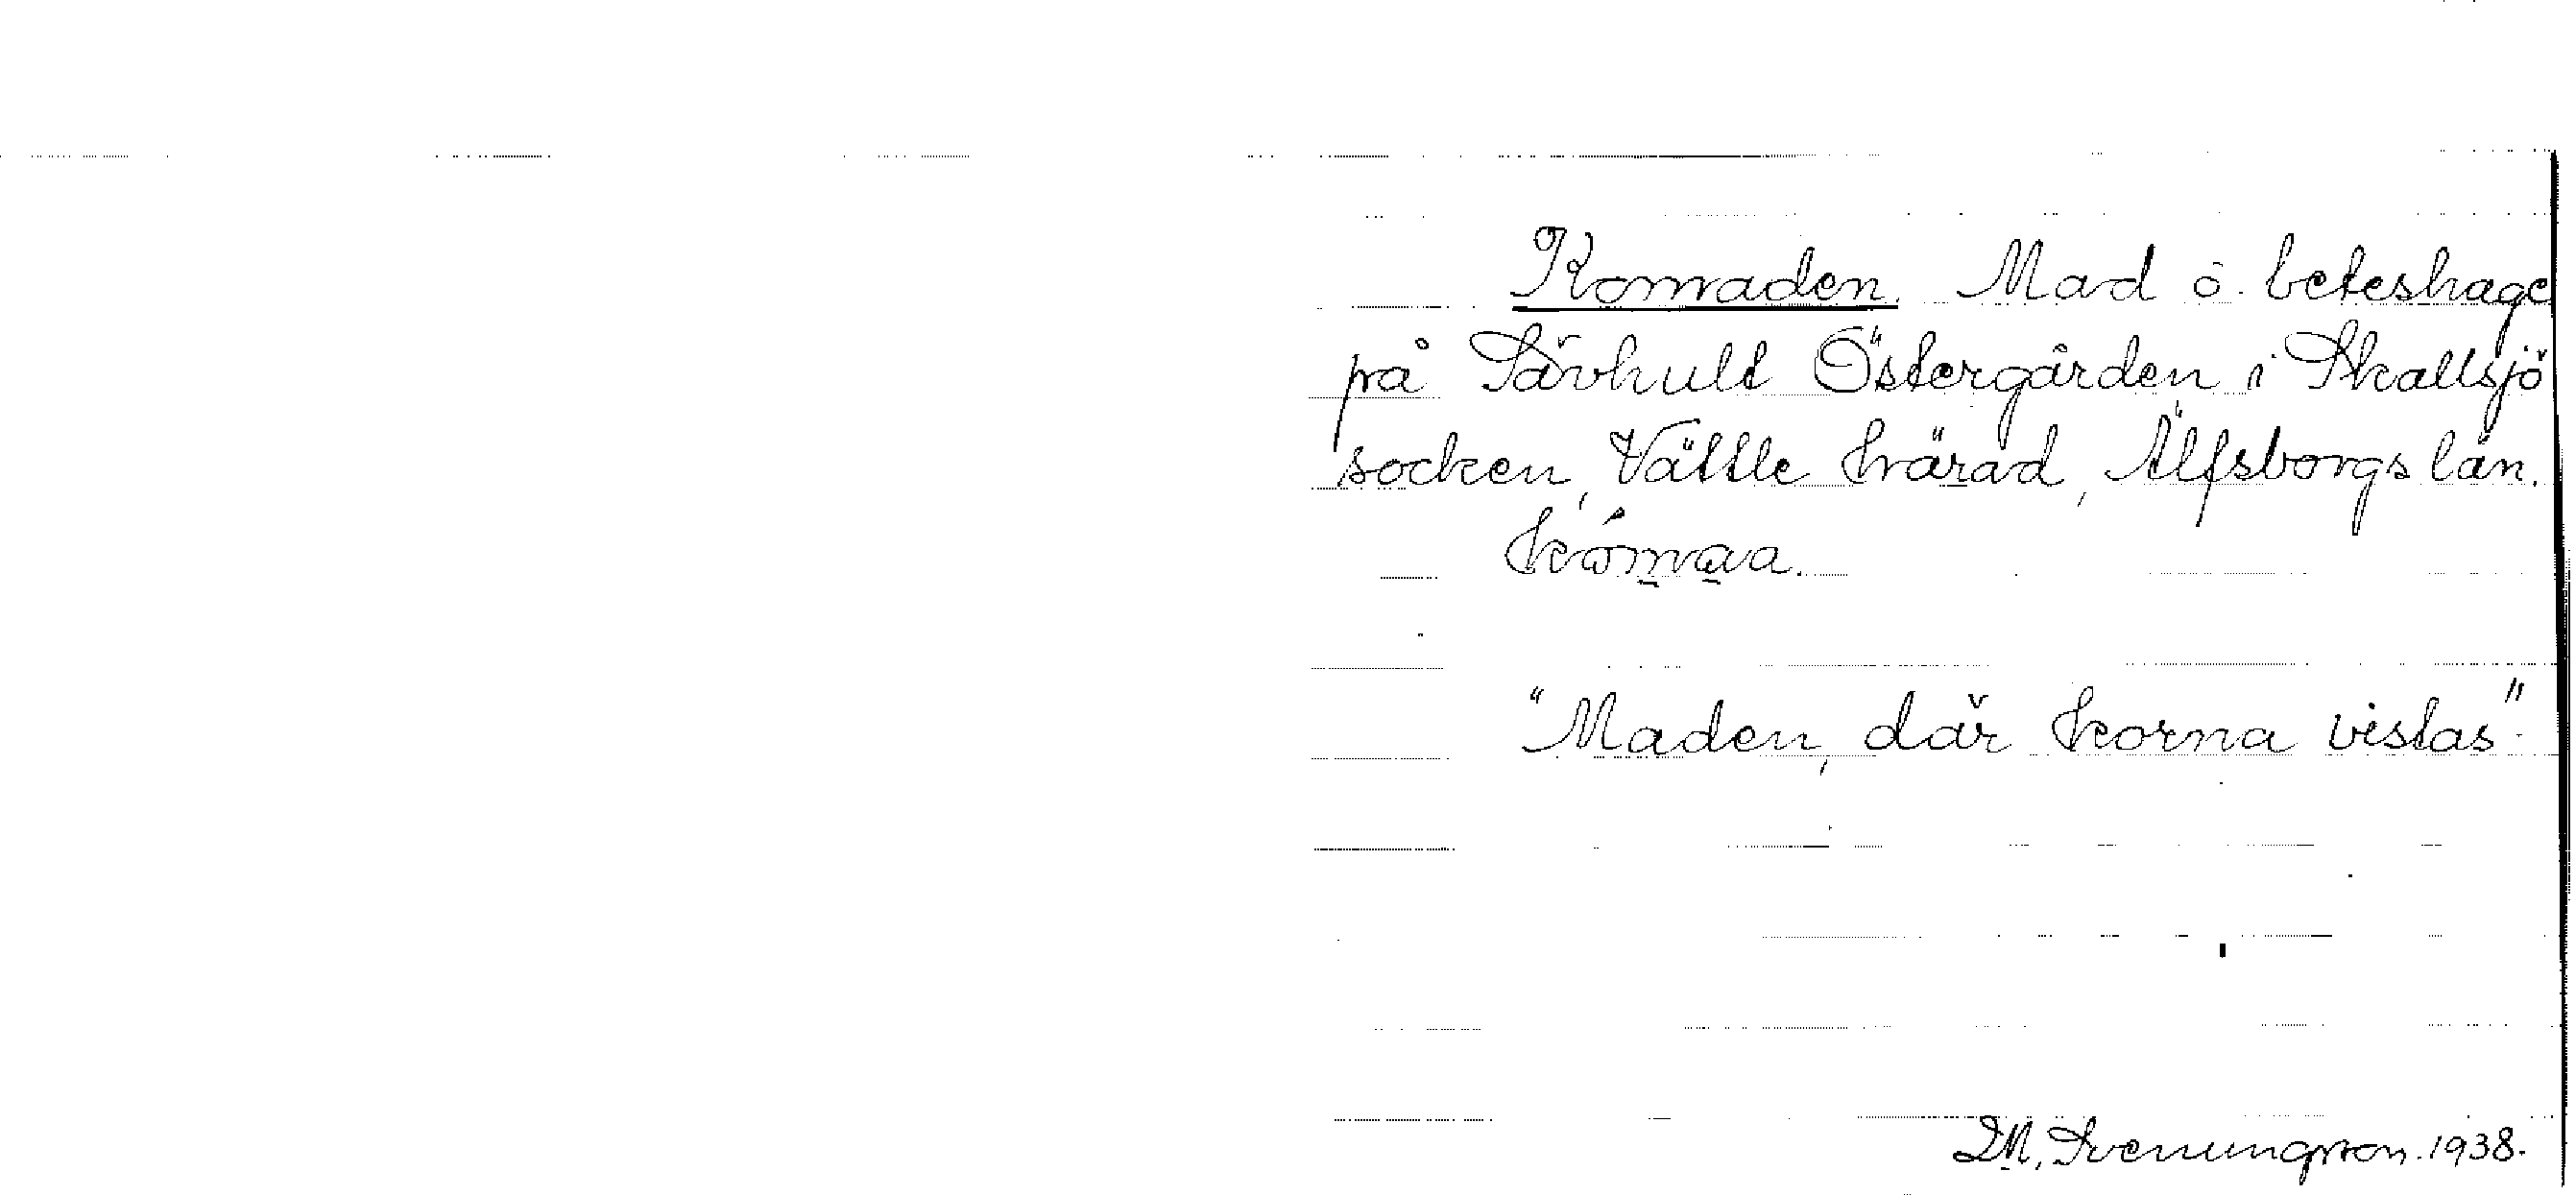 Komaden. Mad o. beteshage
på Sävhult Östergården i Skallsjö
socken, Vättle härad, Älfsborgs län.
"Maden, där korna vistas".
D.M. Svenungsson. 1938.